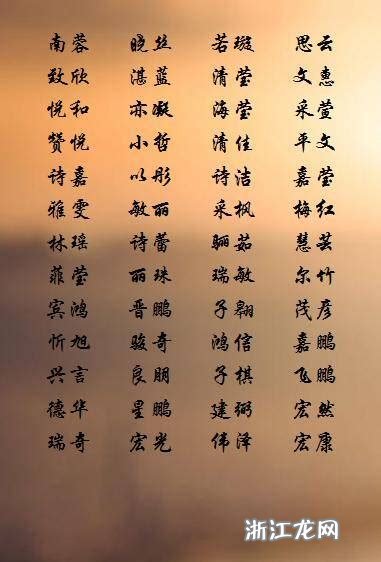 南蓉 晓丝 若璇 思云
致欣 湛蓝 清莹 文惠
悦和 亦凝 海莹 采萱
赞悦 小哲 清佳 平文
诗嘉 以彤 诗洁 嘉莹
雅雯 敏丽 采枫 梅红
林瑶 诗蕾 骊茹 慧芸
菲莹 丽珠 瑞敏 尔竹
宾鸿 晋鹏 子翱 茂彦
忻旭 骏奇 鸿信 嘉鹏
兴言 良朋 子棋 飞鹏
德华 星鹏 建弼 宏然
瑞奇 宏光 伟泽 宏康
浙江龙网